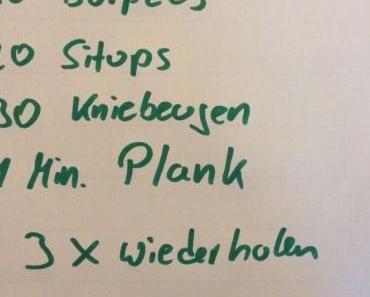 Situps
30 Kniebeugen
1 Min. Plank
3 x wiederholen